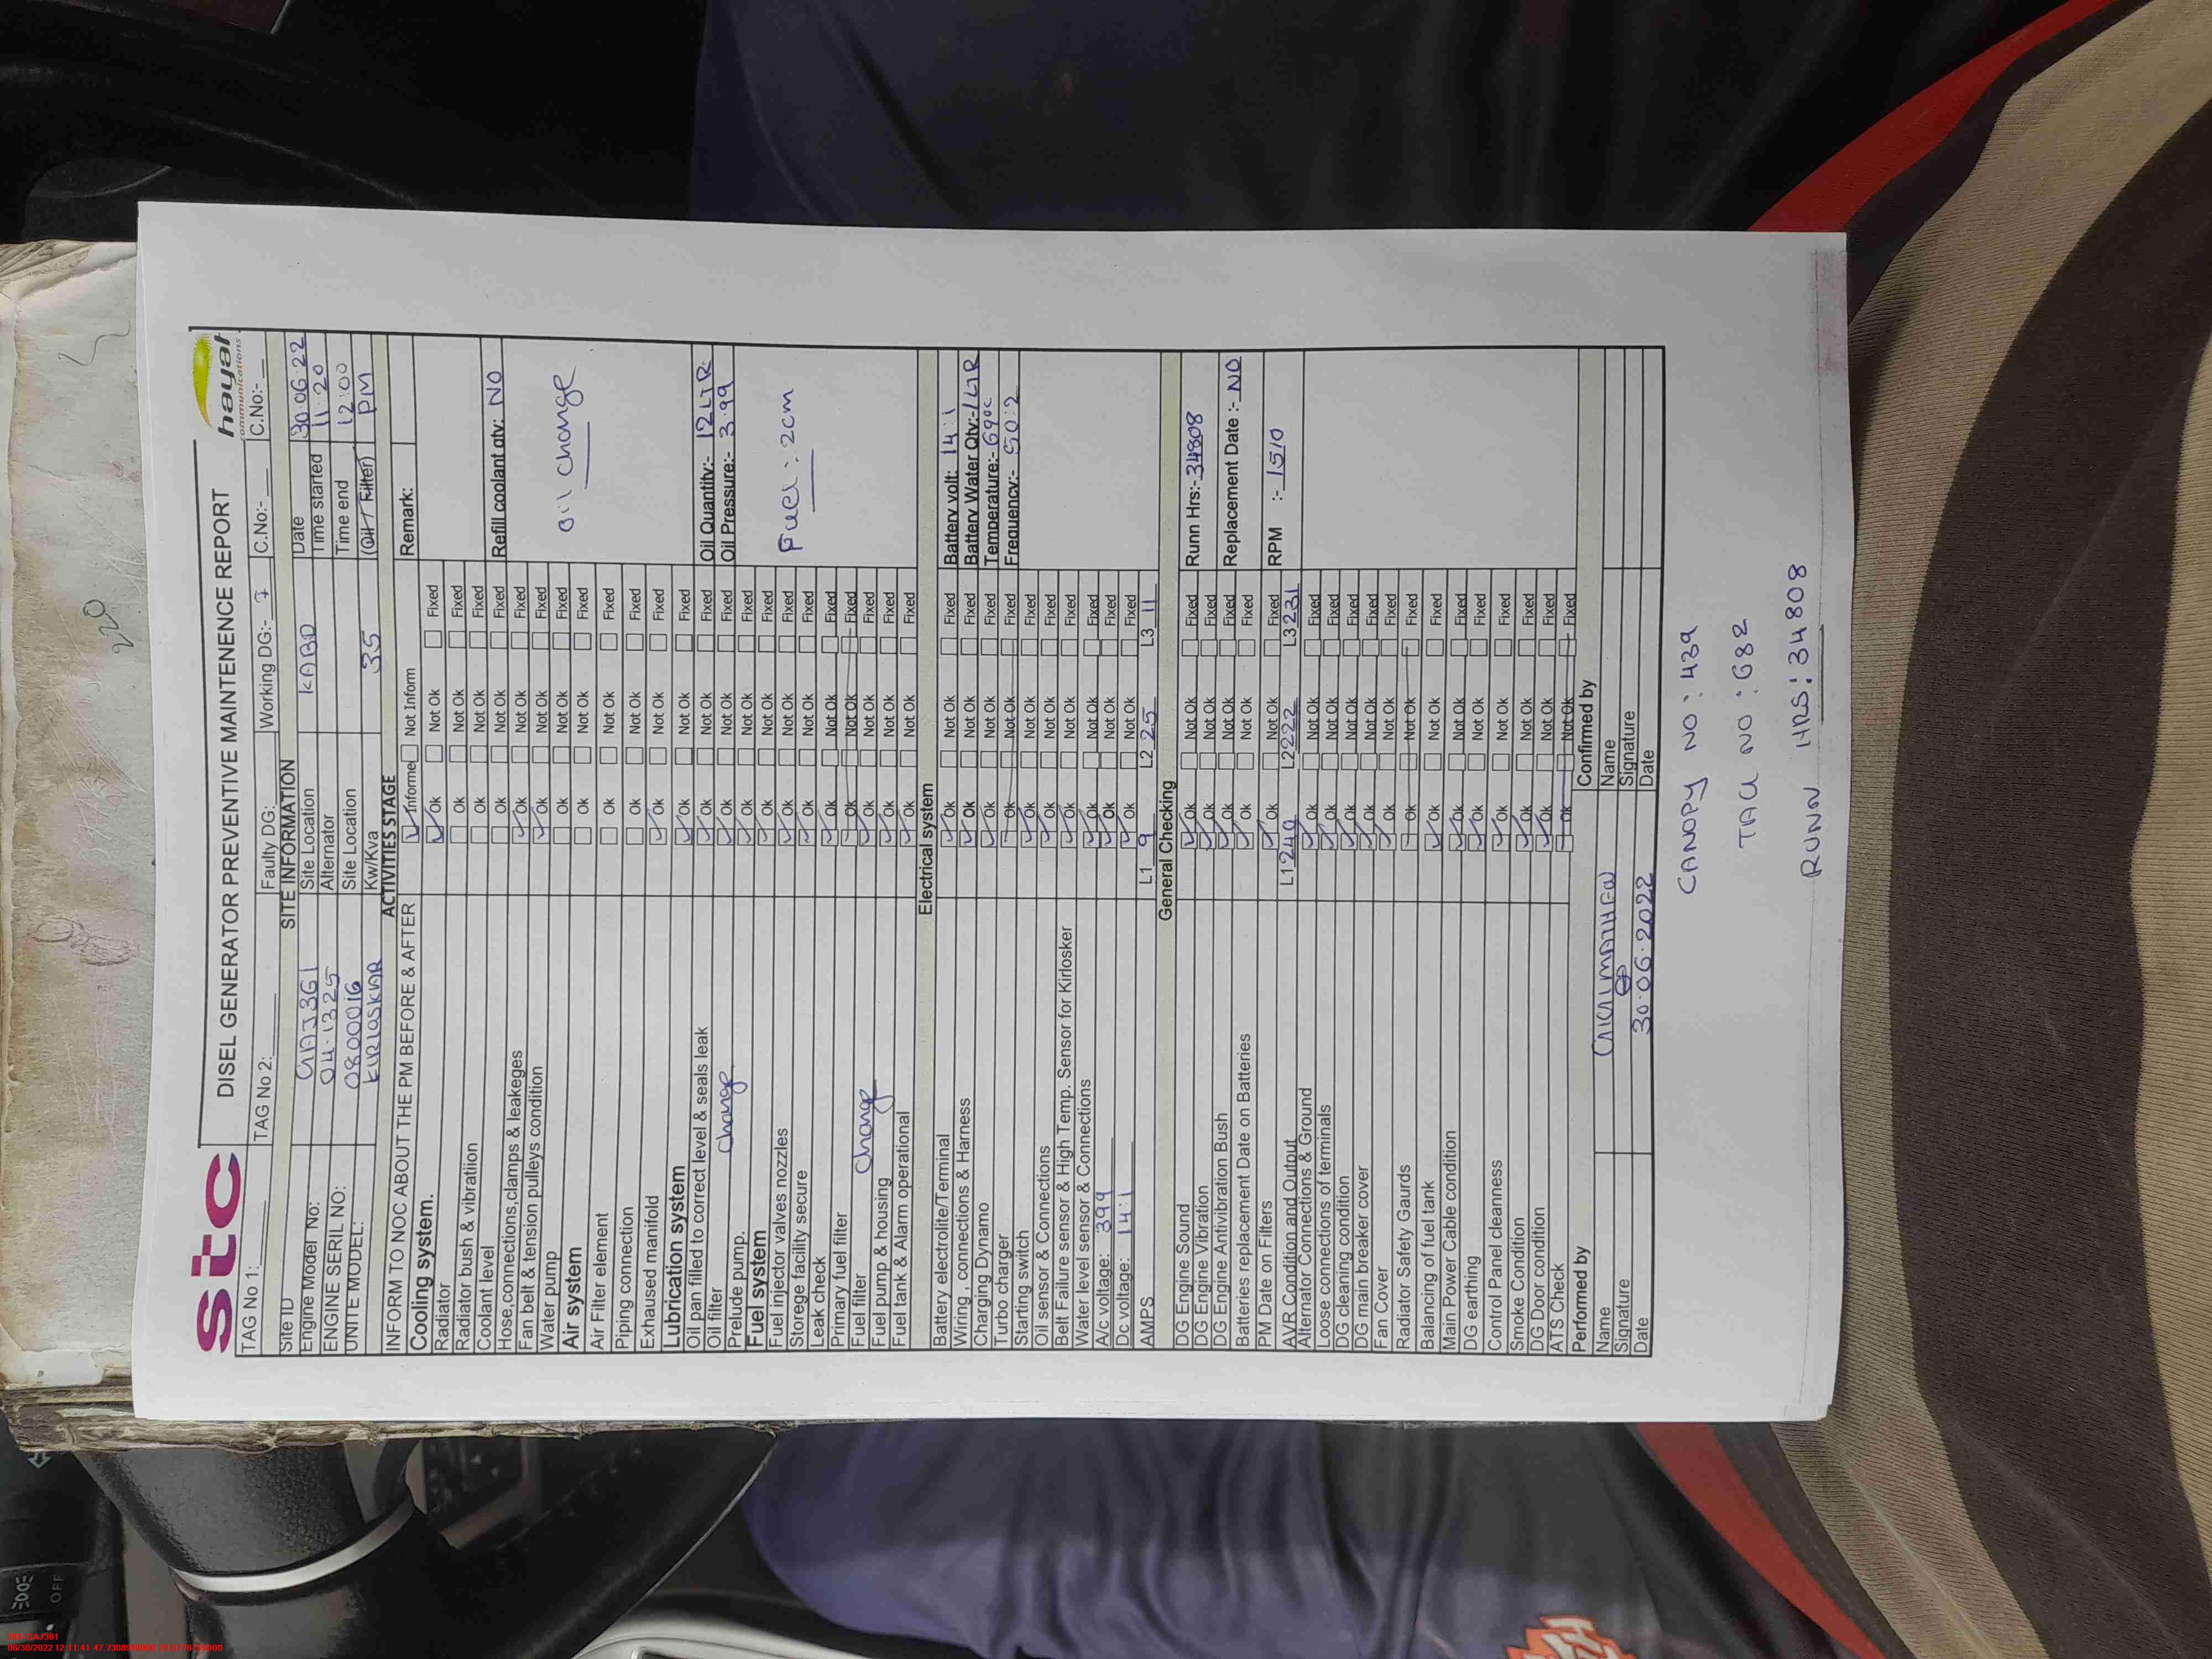 220
stc
DISEL GENERATOR PREVENTIVE MAINTENENCE REPORT
hayat
communications
TAG No 1: TAG No 2: Faulty DG: Working DG:- 7 C.No:- C.No:-
SITE INFORMATION
Site ID GAJ361 Site Location KABD Date 30.06.22
Engine Model No: 04.1325 Alternator Time started 11.20
ENGINE SERIL NO: 0800016 Site Location Time end 12:00
UNITE MODEL: KIRLOSKAR Kw/Kva 35 (Oil+Filter) PM
ACTIVITIES STAGE
INFORM TO NOC ABOUT THE PM BEFORE & AFTER Informe Not Inform Remark:
Cooling system.
Radiator Ok Not Ok Fixed
Radiator bush & vibratiion Ok Not Ok Fixed
Coolant level Ok Not Ok Fixed
Hose,connections,clamps & leakeges Ok Not Ok Fixed Refill coolant qty: NO
Fan belt & tension pulleys condition Ok Not Ok Fixed
Water pump Ok Not Ok Fixed
Air system Ok Not Ok Fixed
oil change
Air Filter element Ok Not Ok Fixed
Piping connection Ok Not Ok Fixed
Exhaused manifold Ok Not Ok Fixed
Lubrication system Ok Not Ok Fixed
Oil pan filled to correct level & seals leak Ok Not Ok Fixed Oil Quantity:- 12LTR
Oil filter change Ok Not Ok Fixed Oil Pressure:- 3.99
Prelude pump. Ok Not Ok Fixed
Fuel system Ok Not Ok Fixed
Fuel injector valves nozzles Ok Not Ok Fixed
Fuel: 2cm
Storege facility secure Ok Not Ok Fixed
Leak check Ok Not Ok Fixed
Primary fuel filter Ok Not Ok Fixed
Fuel filter change Ok Not Ok Fixed
Fuel pump & housing Ok Not Ok Fixed
Fuel tank & Alarm operational Ok Not Ok Fixed
Electrical system
Battery electrolite/Terminal Ok Not Ok Fixed Battery volt: 14.1
Wiring , connections & Harness Ok Not Ok Fixed Battery Water Qty:- 1LTR
Charging Dynamo Ok Not Ok Fixed Temperature:- 69°c
Turbo charger Ok Not Ok Fixed Frequency:- 50.2
Starting switch Ok Not Ok Fixed
Oil sensor & Connections Ok Not Ok Fixed
Belt Failure sensor & High Temp. Sensor for Kirlosker Ok Not Ok Fixed
Water level sensor & Connections Ok Not Ok Fixed
A/c voltage: 399 Ok Not Ok Fixed
Dc voltage: 14.1 Ok Not Ok Fixed
AMPS L1 9 L2 25 L3 11
General Checking
DG Engine Sound Ok Not Ok Fixed Runn Hrs:- 34808
DG Engine Vibration Ok Not Ok Fixed
DG Engine Antivibration Bush Ok Not Ok Fixed Replacement Date :- NO
Batteries replacement Date on Batteries Ok Not Ok Fixed
PM Date on Filters Ok Not Ok Fixed RPM :- 1510
AVR Condition and Output L1 240 L2 222 L3 231
Alternator Connections & Ground Ok Not Ok Fixed
Loose connections of terminals Ok Not Ok Fixed
DG cleaning condition Ok Not Ok Fixed
DG main breaker cover Ok Not Ok Fixed
Fan Cover Ok Not Ok Fixed
Radiator Safety Gaurds Ok Not Ok Fixed
Balancing of fuel tank Ok Not Ok Fixed
Main Power Cable condition Ok Not Ok Fixed
DG earthing Ok Not Ok Fixed
Control Panel cleanness Ok Not Ok Fixed
Smoke Condition Ok Not Ok Fixed
DG Door condition Ok Not Ok Fixed
ATS Check Ok Not Ok Fixed
Performed by Confirmed by
Name Name
Signature Signature
Date 30.06.2022 Date
CANOPY NO: 439
TAG NO: 682
RUNN HRS: 34808
OFF